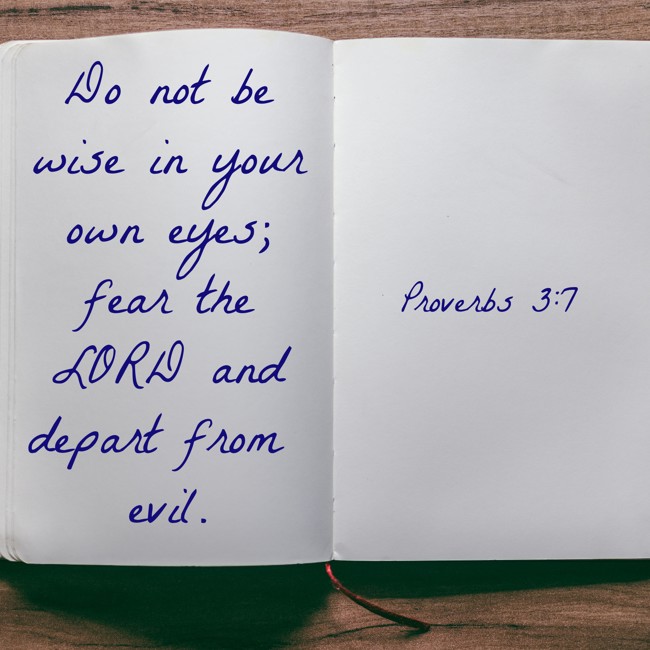 Do not be
wise in your
own eyes;
fear the
LORD and
depart from
evil.
Proverbs 3:7